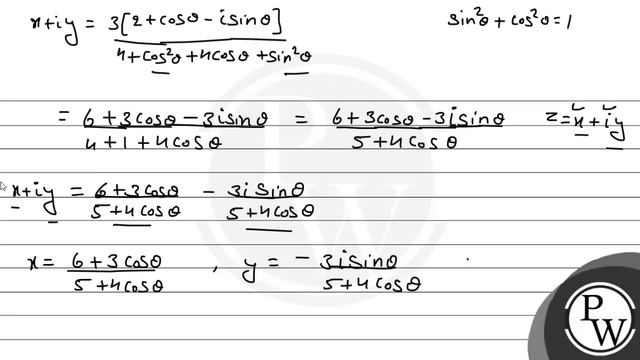 x+iy = 3[2+cosθ-isinθ] / 4+cos²θ+4cosθ+sin²θ    sin²θ+cos²θ=1
= 6+3cosθ-3isinθ / 4+1+4cosθ = 6+3cosθ-3isinθ / 5+4cosθ    z=x+iy
x+iy = 6+3cosθ / 5+4cosθ - 3isinθ / 5+4cosθ
x = 6+3cosθ / 5+4cosθ , y = - 3isinθ / 5+4cosθ
PW
PW